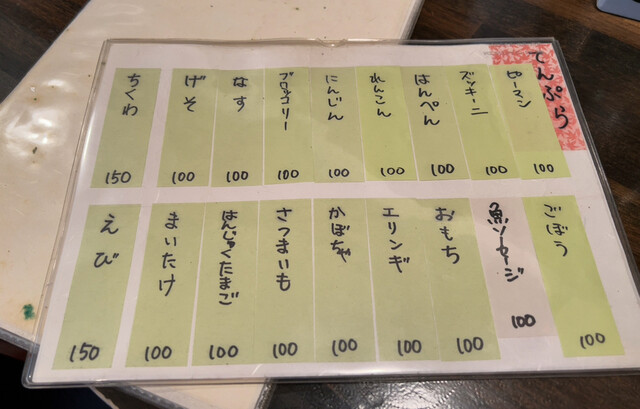 てんぷら
ピーマン
100
ズッキーニ
100
はんぺん
100
れんこん
100
にんじん
100
ブロッコリー
100
なす
100
げそ
100
ちくわ
150
ごぼう
100
魚ソーセージ
100
おもち
100
エリンギ
100
かぼちゃ
100
さつまいも
100
はんじゅくたまご
100
まいたけ
100
えび
150